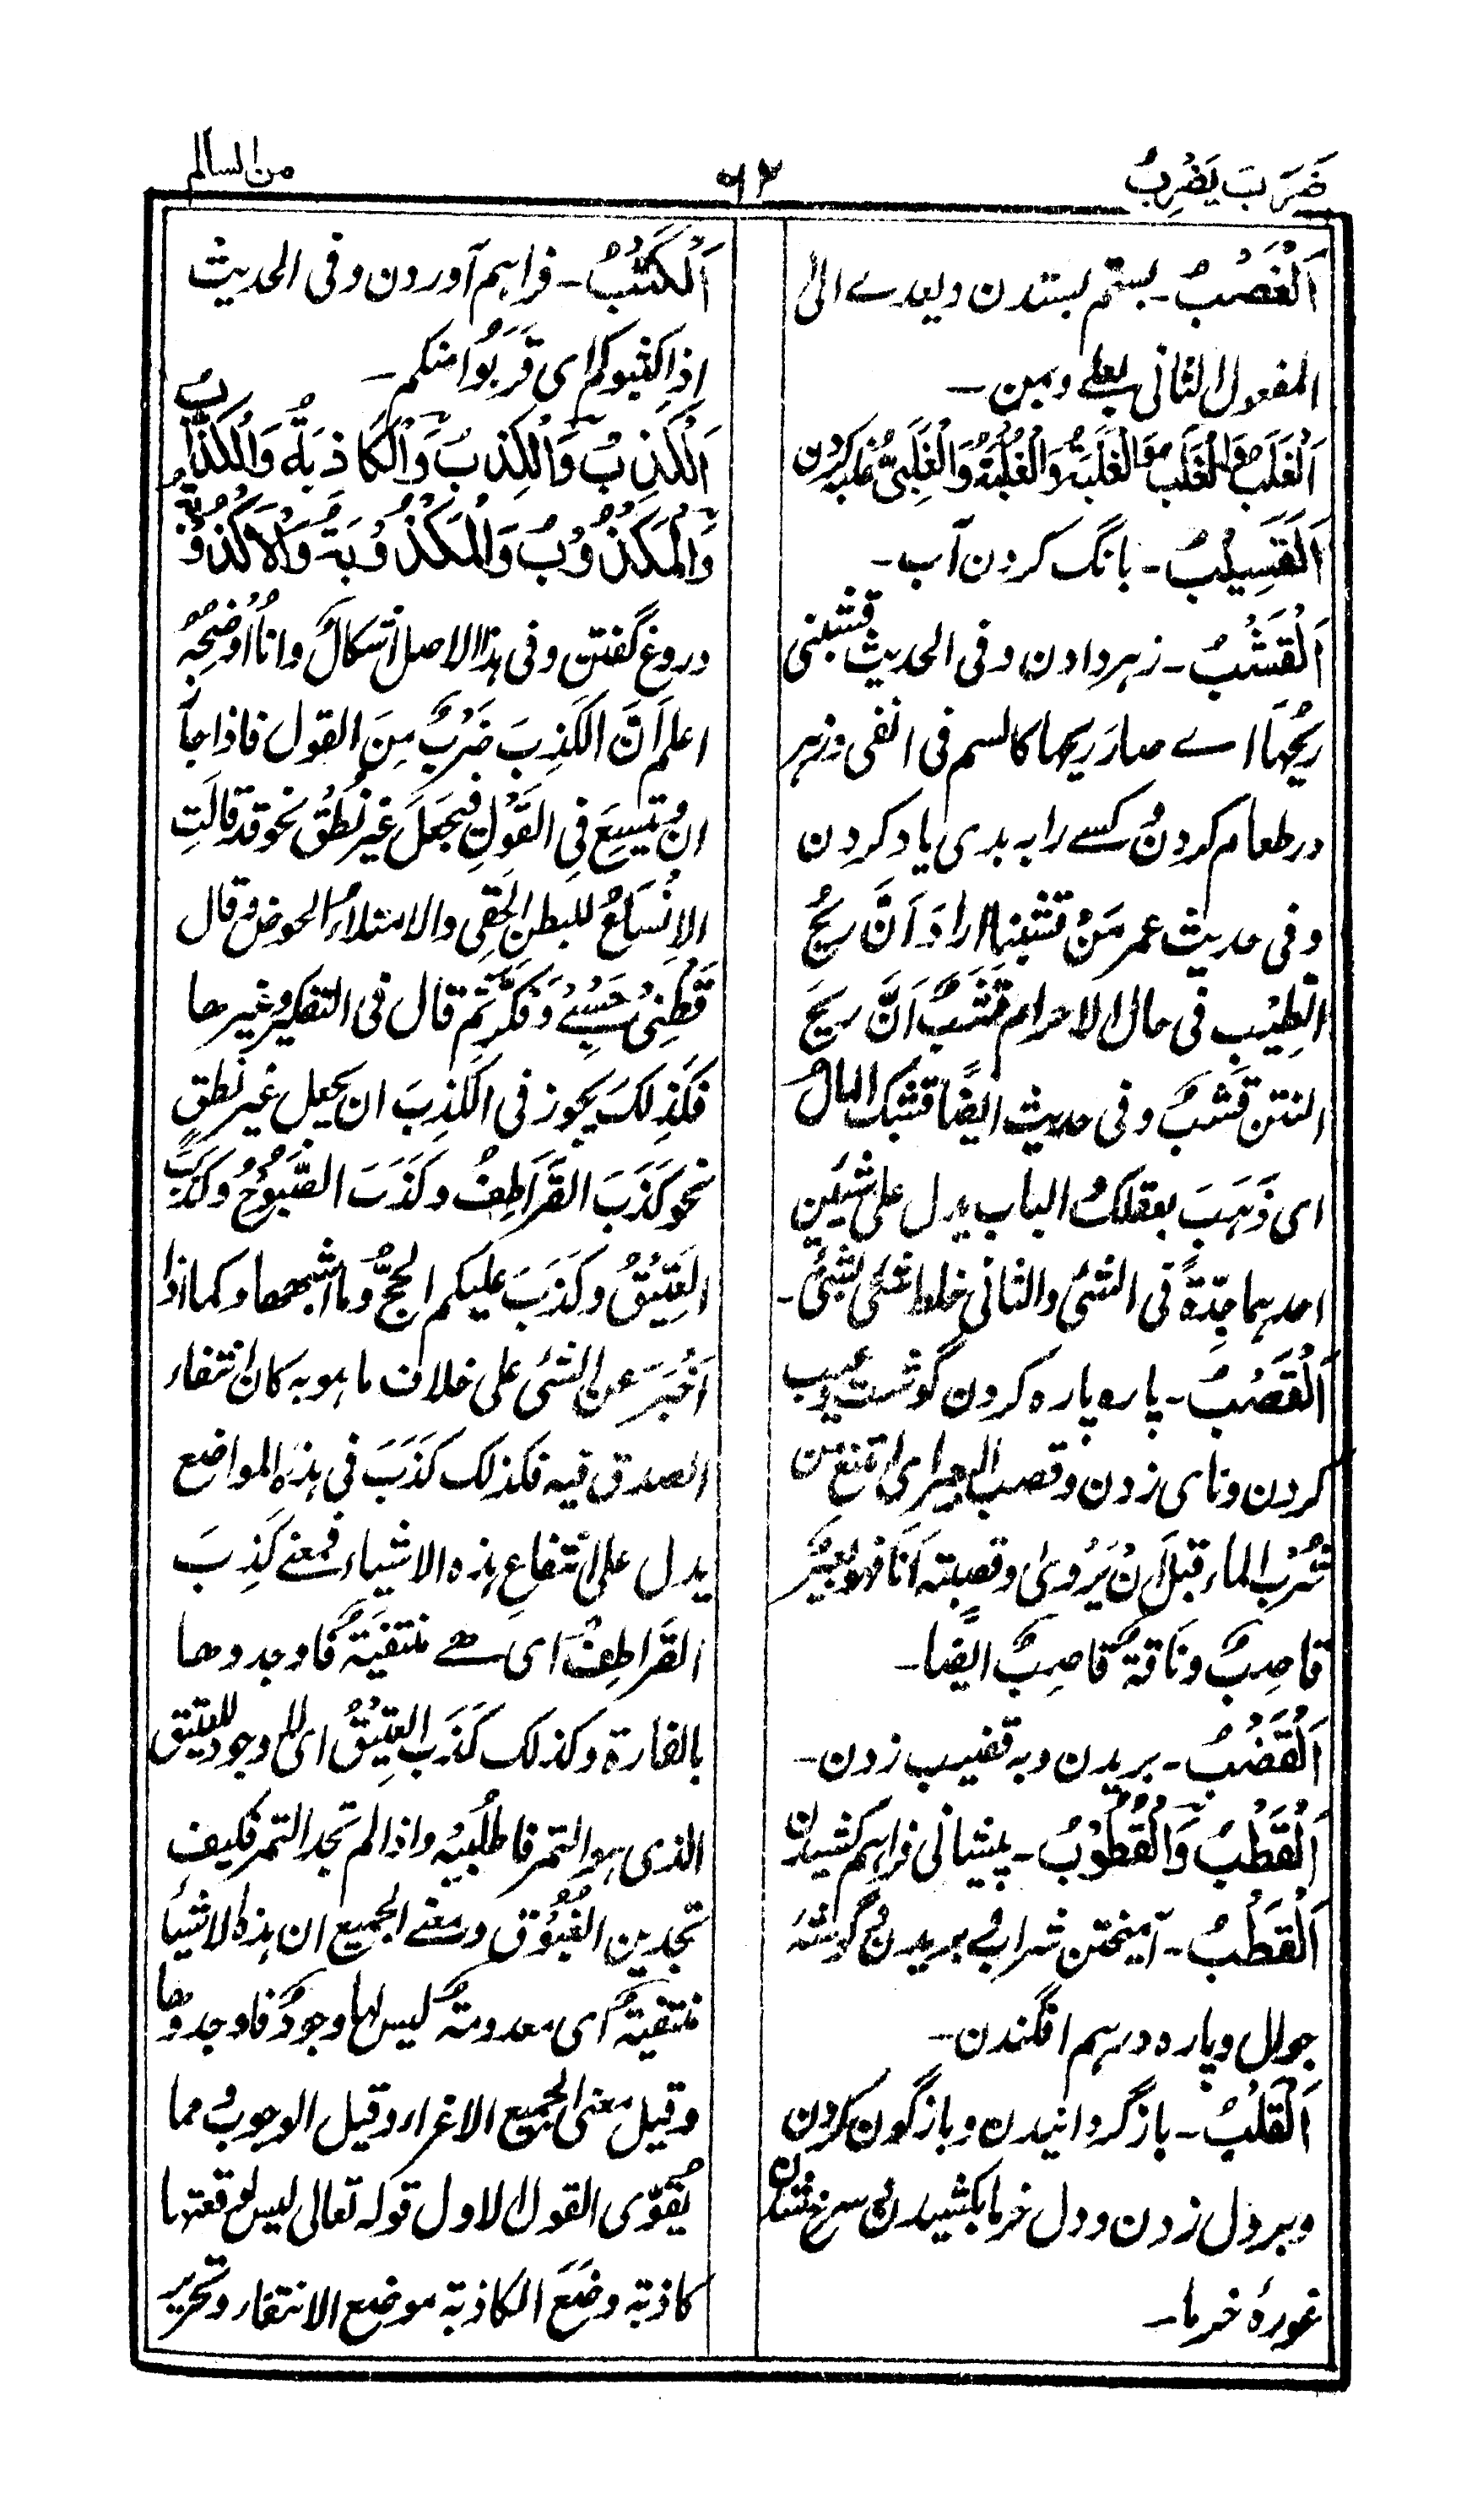 ضَرَبَ يَضْرِبُ
٩٢
من السالم
اَلْغَصْبُ ـ بستم بستدن ویعدے الی
المفعول الثانی بعلے وبمن ـ
اَلْغَلَبُ وَالْغَلْبُ وَالْغَلَبَةُ وَالْغُلُبَّةُ وَالْغُلُبّٰی غلبہ کردن
اَلْقَسِیْبُ ـ بانگ کردن آب ـ
اَلْقَشْبُ ـ زہر دادن وفی الحدیث قشبنی
رِیْحُهَا اے صار ریحها کالسم فی انفی وزہر
درطعام کردن و کسے را بہ بدی یاد کردن
وفی حدیث عمر مَنْ قشبنا اراد اَنَّ رِیْحَ
الطِّیْبِ فی حال الاحرام قَشْبٌ اَنَّ ریحَ
النتن قَشْبٌ وفی حدیثہ ایضًا قشبک المالُ
ای ذَهَبَ بعقلک والباب یدل علی شیئین
احدہما جِدّةٌ فی الشئ والثانی خلط شئ بشئ ـ
اَلْقَصْبُ ـ پارہ پارہ کردن گوشت وعیب
کردن ونای زدن وقصب البعیر ای امتنع من
شُرْبِ الماء قبل اَنْ یَرْوٰی وقصبتہ اَنَا فهو بعیر
قاصِبٌ وناقةٌ قاصِبٌ ایضًا ـ
اَلْقَضْبُ ـ بریدن وبہ قضیب زدن ـ
اَلْقَطْبُ وَالْقُطُوْبُ ـ پیشانی فراہم کشیدن
اَلْقَطْبُ ـ آمیختن شراب و بریدن و گوشہ
جوال وپارہ درہم افگندن ـ
اَلْقَلْبُ ـ بازگردانیدن وبازگون کردن
وبر دل زدن ودل خرما بکشیدن و سرخ شدن
غورۂ خرما ـ
اَلْکَثْبُ ـ فراہم آوردن وفی الحدیث
اِذا کثبوکم ای قَرَبُوا منکم ـ
اَلْکَذِبُ وَالْکِذْبُ وَالْکَاذِبَةُ وَالْکِذَّابُ
وَالْمَکْذُوْبُ وَالْمَکْذُوْبَةُ وَالْاُکْذُوْبَةُ
دروغ گفتن وفی ہذا الاصل اشکالٌ وانا اُوضحہ
اعلم اَنَّ الکَذِبَ ضَرْبٌ مِنَ القول فاذا جاز
ان یُتَّسِعَ فِی القَوْلِ فیجعل غیرُ نُطْقٍ نحو قد قالتِ
الاَنْسَاعُ للبطنِ الْحَقِ والامتلاء الحوض وقال
قَطْنِی حَسْبِے وَفَکَّرَ ثُمَّ قال فی التفکیر وغیرها
فکَذٰلِکَ یجوز فی الکَذِبَ ان یجعل غیر نطقٍ
نحو کَذَبَ القَرَاطِفُ وکَذَبَ الصَّبُوْحُ وکَذَبَ
العَتِیْقُ وکَذَبَ علیکم الحجُّ وما اشبهها وکما اذا
اَخْبَرَ عن الشئ علی خلاف ما ہو بہ کان انتفاء
الصدق فیہ فکذلک کَذَبَ فی ہذہ المواضع
یدل علی انتفاءِ ہذہ الاشیاء فمعنے کَذِبَ
القَرَاطِفُ ای هے منتفیَةٌ فاوجدوها
بالغارة وکذلک کَذَبَ العَتِیْقُ ای لا وجود للعتیق
الذی ہو التمر فاطلُبِیْہ واذا لم تجد التمر فکیف
تجدین الغَبُوْق ومعنے الجمیع ان ہذہ الاشیأ
منتفیةٌ ای معدومةٌ لیس لها وجودٌ فاوجدوها
وقیل معنی الجمیع الاغراء وقیل الوجوب ومما
یُقوّی القول الاول قولہ تعالی لیس لوقعتها
کاذبة وضَعَ الکاذبة موضع الانتفاء وتحریر